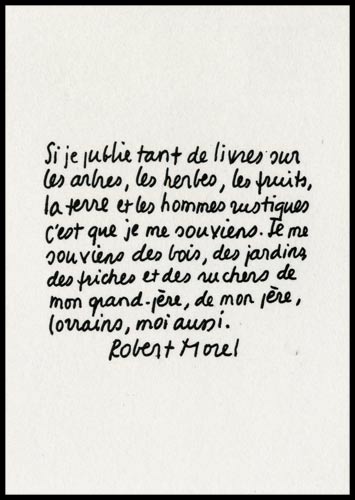 Si je publie tant de livres sur
les arbres, les herbes, les fruits,
la terre et les hommes rustiques
c'est que je me souviens. Je me
souviens des bois, des jardins
des friches et des ruchers de
mon grand-père, de mon père,
lorrains, moi aussi.
Robert Morel